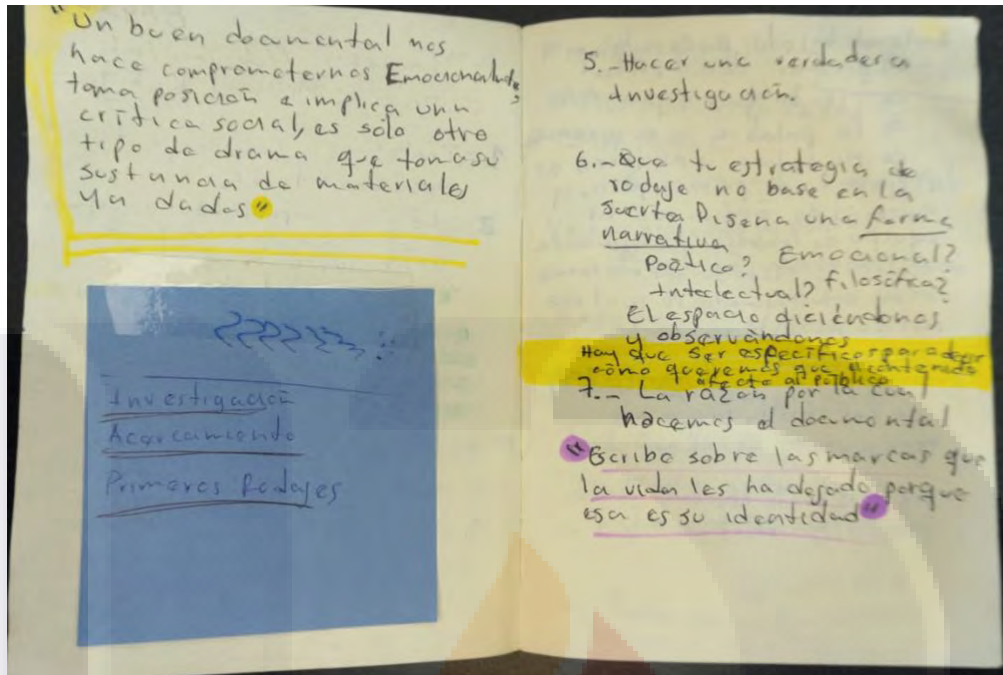 "Un buen documental nos
hace comprometernos Emocionalmente,
toma posición e implica una
crítica social, es sólo otro
tipo de drama que toma su
sustancia de materiales
ya dados"
Investigación
Acercamiento
Primeros Rodajes
5.-Hacer una verdadera
Investigación.
6.-Que tu estrategia de
rodaje no base en la
suerte. Diseña una forma
narrativa
Poético? Emocional?
Intelectual? filosófica?
El espacio diciéndonos
y observándonos
Hay que ser específicos para decir
cómo queremos que el contenido
afecte al público
7.- La razón por la cual
hacemos el documental
"Escribe sobre las marcas que
la vida les ha dejado porque
esa es su identidad"